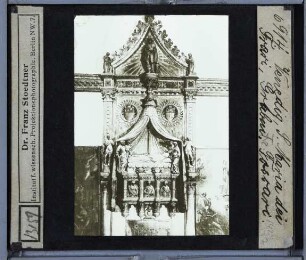 Dr. Franz Stoedtner
Institut f. wissensch. Projektionsphotographie, Berlin NW. 7.
Venedig, S. Maria dei
Frari, Grabmal Foscari